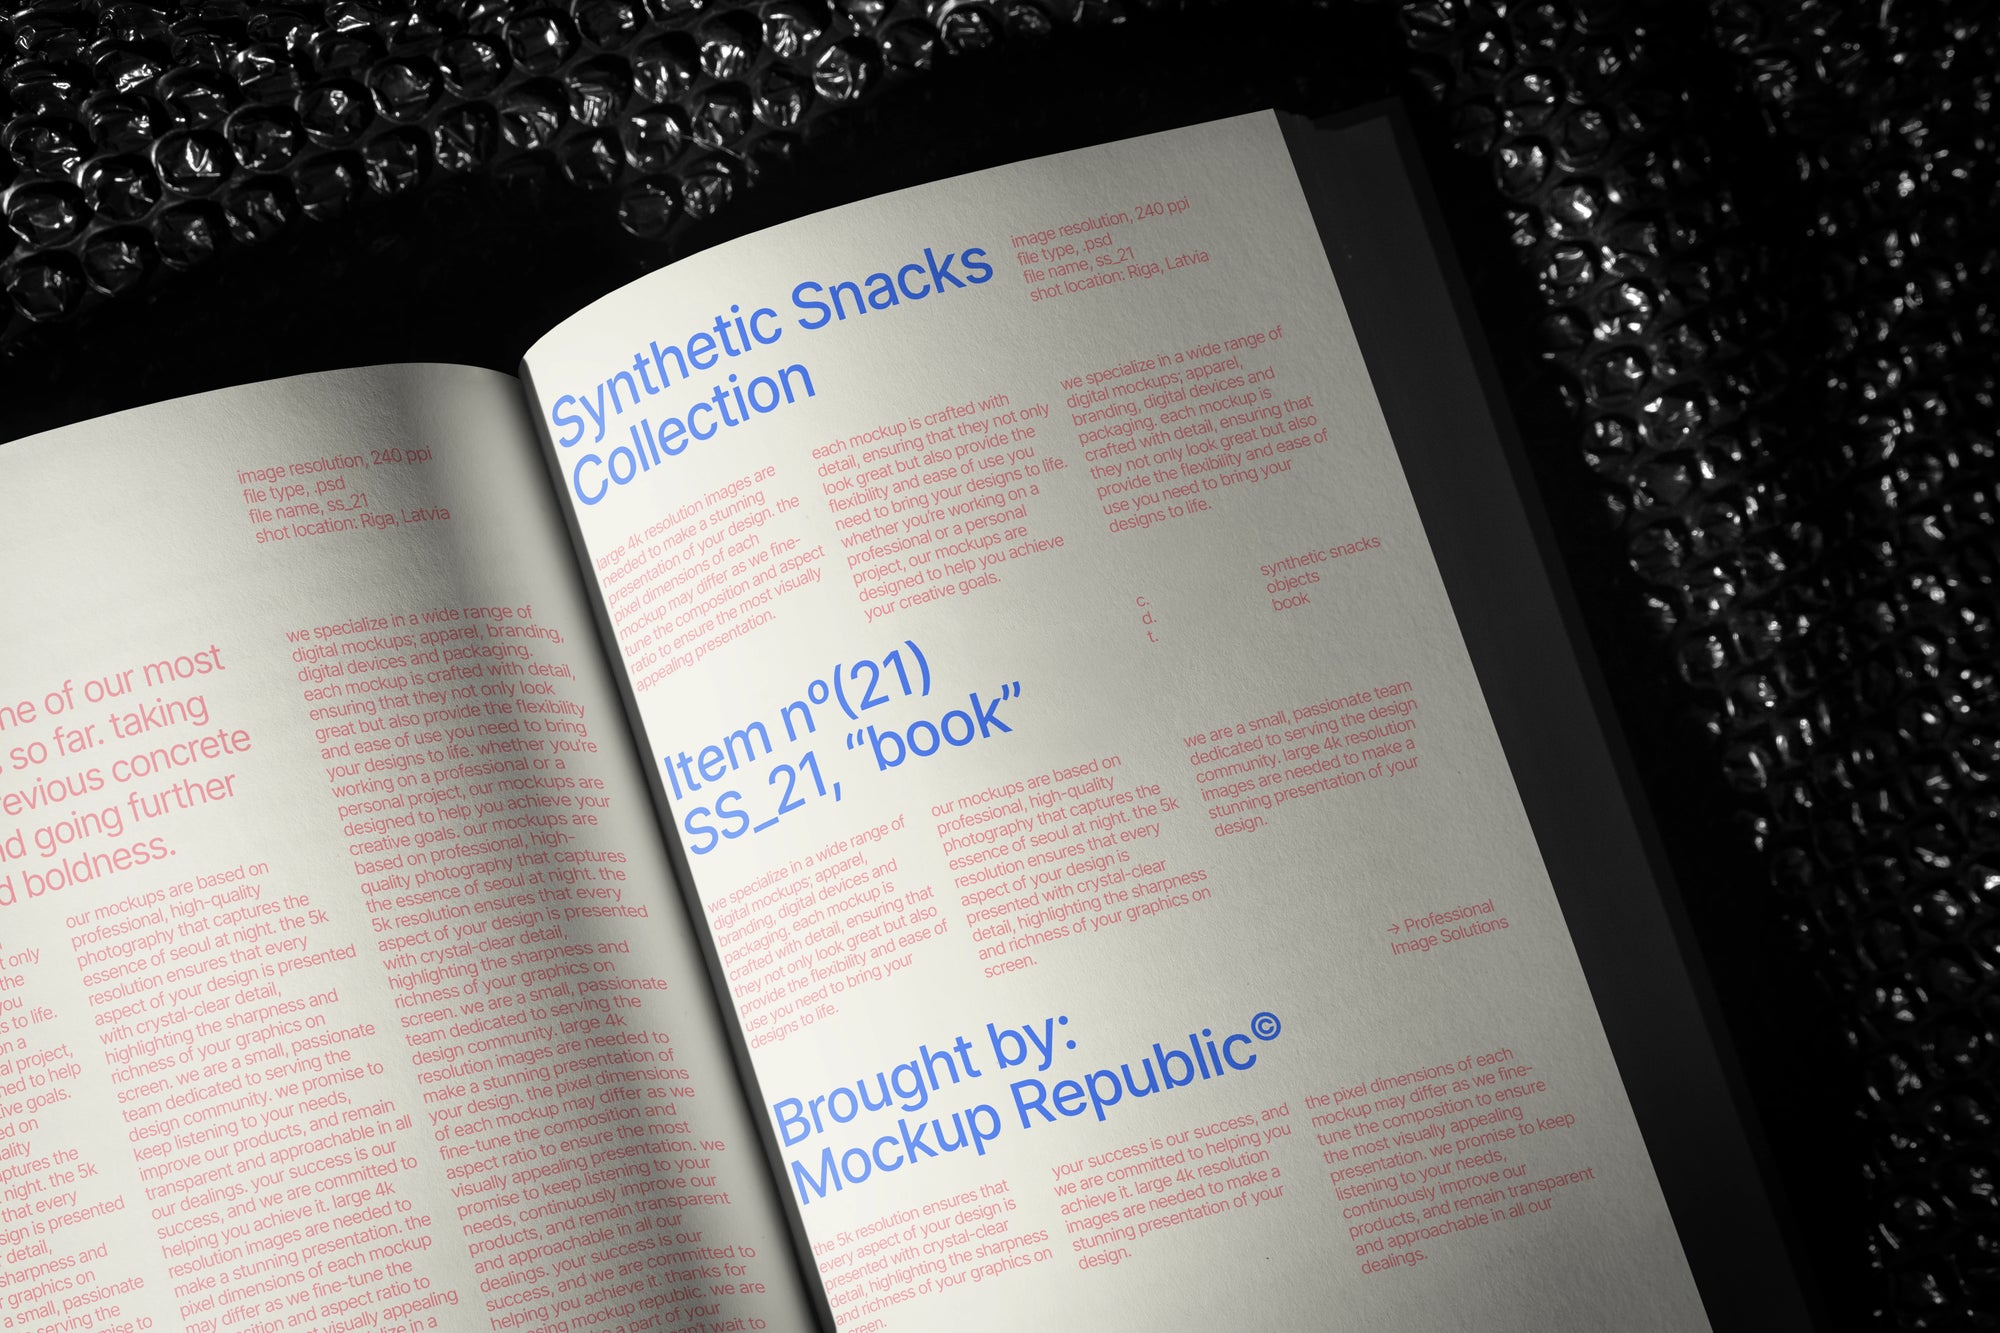 image resolution, 240 ppi
file type, .psd
file name, ss_21
shot location: Riga, Latvia
of our most
so far. taking
concrete
going further
boldness.
only
the
you
to life.
on a
project,
to help
goals.
on
the
night. the 5k
that every
is presented
detail,
sharpness and
graphics on
a small, passionate
serving the
to
our mockups are based on
professional, high-quality
photography that captures the
essence of seoul at night. the 5k
resolution ensures that every
aspect of your design is presented
with crystal-clear detail,
highlighting the sharpness and
richness of your graphics on
screen. we are a small, passionate
team dedicated to serving the
design community. we promise to
keep listening to your needs,
improve our products, and remain
transparent and approachable in all
our dealings. your success is our
success, and we are committed to
helping you achieve it. large 4k
resolution images are needed to
make a stunning presentation. the
pixel dimensions of each mockup
may differ as we fine-tune the
and aspect ratio to
visually appealing
in a
we specialize in a wide range of
digital mockups; apparel, branding,
digital devices and packaging.
each mockup is crafted with detail,
ensuring that they not only look
great but also provide the flexibility
and ease of use you need to bring
your designs to life. whether you're
working on a professional or a
personal project, our mockups are
designed to help you achieve your
creative goals. our mockups are
based on professional, high-
quality photography that captures
the essence of seoul at night. the
5k resolution ensures that every
aspect of your design is presented
with crystal-clear detail,
highlighting the sharpness and
richness of your graphics on
screen. we are a small, passionate
team dedicated to serving the
design community. large 4k
resolution images are needed to
make a stunning presentation of
your design. the pixel dimensions
of each mockup may differ as we
fine-tune the composition and
aspect ratio to ensure the most
visually appealing presentation. we
promise to keep listening to your
needs, continuously improve our
products, and remain transparent
and approachable in all our
dealings. your success is our
success, and we are committed to
helping you achieve it. thanks for
mockup republic. we are
a part of your
can't wait to
Synthetic Snacks
Collection
image resolution, 240 ppi
file type, .psd
file name, ss_21
shot location: Riga, Latvia
large 4k resolution images are
needed to make a stunning
presentation of your design. the
pixel dimensions of each
mockup may differ as we fine-
tune the composition and aspect
ratio to ensure the most visually
appealing presentation.
each mockup is crafted with
detail, ensuring that they not only
look great but also provide the
flexibility and ease of use you
need to bring your designs to life.
whether you're working on a
professional or a personal
project, our mockups are
designed to help you achieve
your creative goals.
we specialize in a wide range of
digital mockups; apparel,
branding, digital devices and
packaging. each mockup is
crafted with detail, ensuring that
they not only look great but also
provide the flexibility and ease of
use you need to bring your
designs to life.
c.
d.
t.
synthetic snacks
objects
book
Item nº(21)
SS_21, “book”
we specialize in a wide range of
digital mockups; apparel,
branding, digital devices and
packaging. each mockup is
crafted with detail, ensuring that
they not only look great but also
provide the flexibility and ease of
use you need to bring your
designs to life.
our mockups are based on
professional, high-quality
photography that captures the
essence of seoul at night. the 5k
resolution ensures that every
aspect of your design is
presented with crystal-clear
detail, highlighting the sharpness
and richness of your graphics on
screen.
we are a small, passionate team
dedicated to serving the design
community. large 4k resolution
images are needed to make a
stunning presentation of your
design.
→ Professional
Image Solutions
Brought by:
Mockup Republic©
the 5k resolution ensures that
every aspect of your design is
presented with crystal-clear
detail, highlighting the sharpness
and richness of your graphics on
screen.
your success is our success, and
we are committed to helping you
achieve it. large 4k resolution
images are needed to make a
stunning presentation of your
design.
the pixel dimensions of each
mockup may differ as we fine-
tune the composition to ensure
the most visually appealing
presentation. we promise to keep
listening to your needs,
continuously improve our
products, and remain transparent
and approachable in all our
dealings.